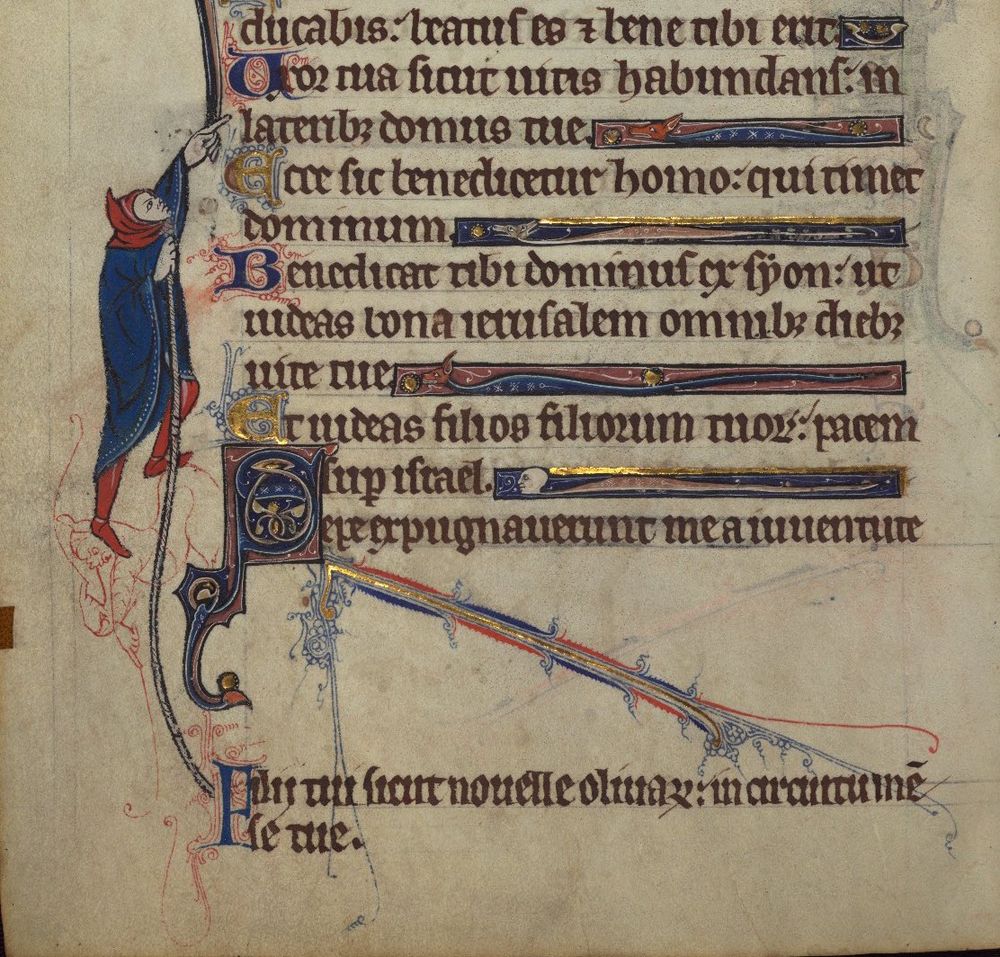 ducabis: beatus es ⁊ bene tibi erit.
Uxor tua sicut uitis habundans: in
lateribꝫ domus tue.
Ecce sic benedicetur homo: qui timet
dominum.
Benedicat tibi dominus ex syon: ut
uideas bona ierusalem omnibꝫ diebꝫ
uite tue.
Et uideas filios filiorum tuoꝝ: pacem
sup israel.
Sepe expugnauerunt me a iuuentute
Filii tui sicut nouelle oliuaꝝ: in circuitu mē
se tue.